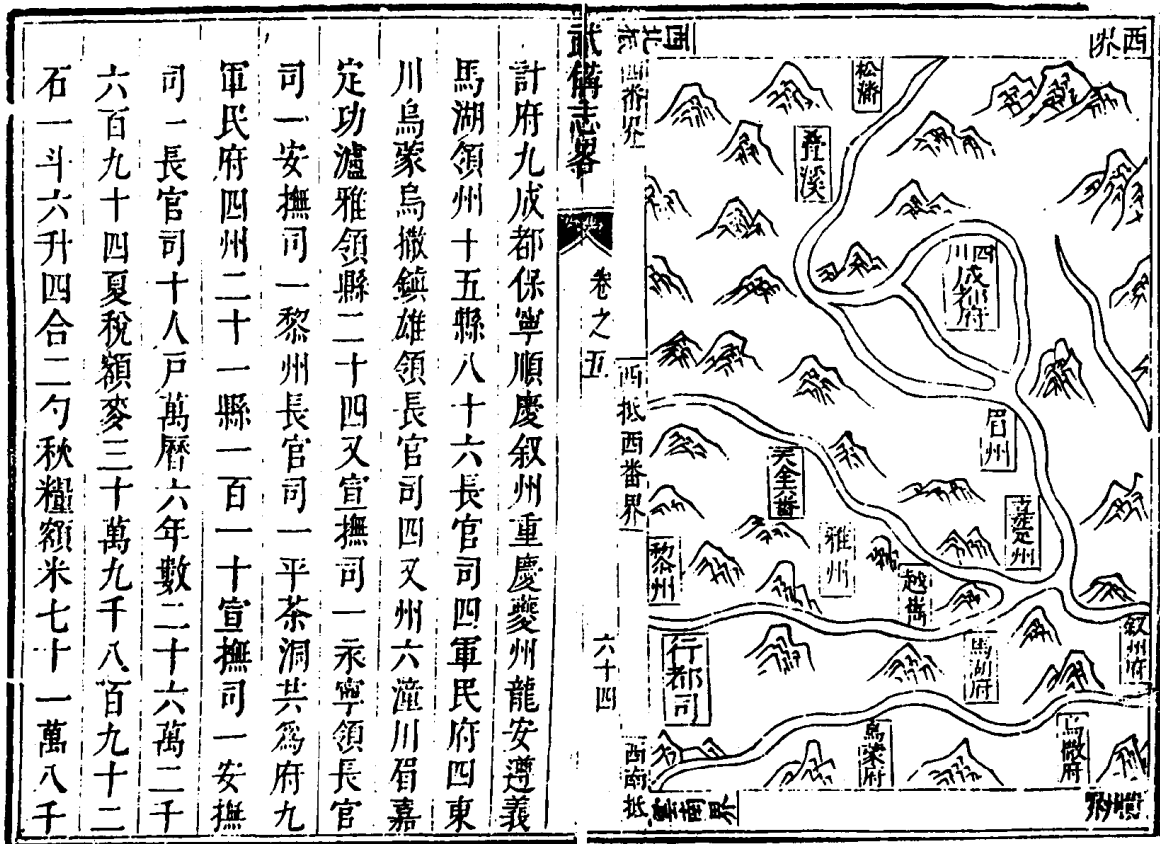 西界
松潘
疊溪
四川
成都府
眉州
天全六番
嘉定州
雅州
越嶲
黎州
叙州府
馬湖府
行都司
烏蒙府
烏撒府
西北抵
西番界
西抵西番界
西南抵
雲南界
武備志畧
卷之五
六十四
計府九成都保寧順慶叙州重慶夔州龍安遵義
馬湖領州十五縣八十六長官司四軍民府四東
川烏蒙烏撒鎮雄領長官司四又州六潼川眉嘉
定功瀘雅領縣二十四又宣撫司一永寧領長官
司一安撫司一黎州長官司一平茶洞共爲府九
軍民府四州二十一縣一百一十宣撫司一安撫
司一長官司十人戸萬曆六年數二十六萬二千
六百九十四夏稅額麥三十萬九千八百九十二
石一斗六升四合二勺秋糧額米七十一萬八千